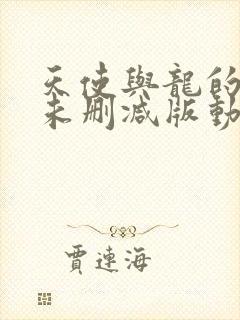 天使與龍的
未刪減版動
賈連海